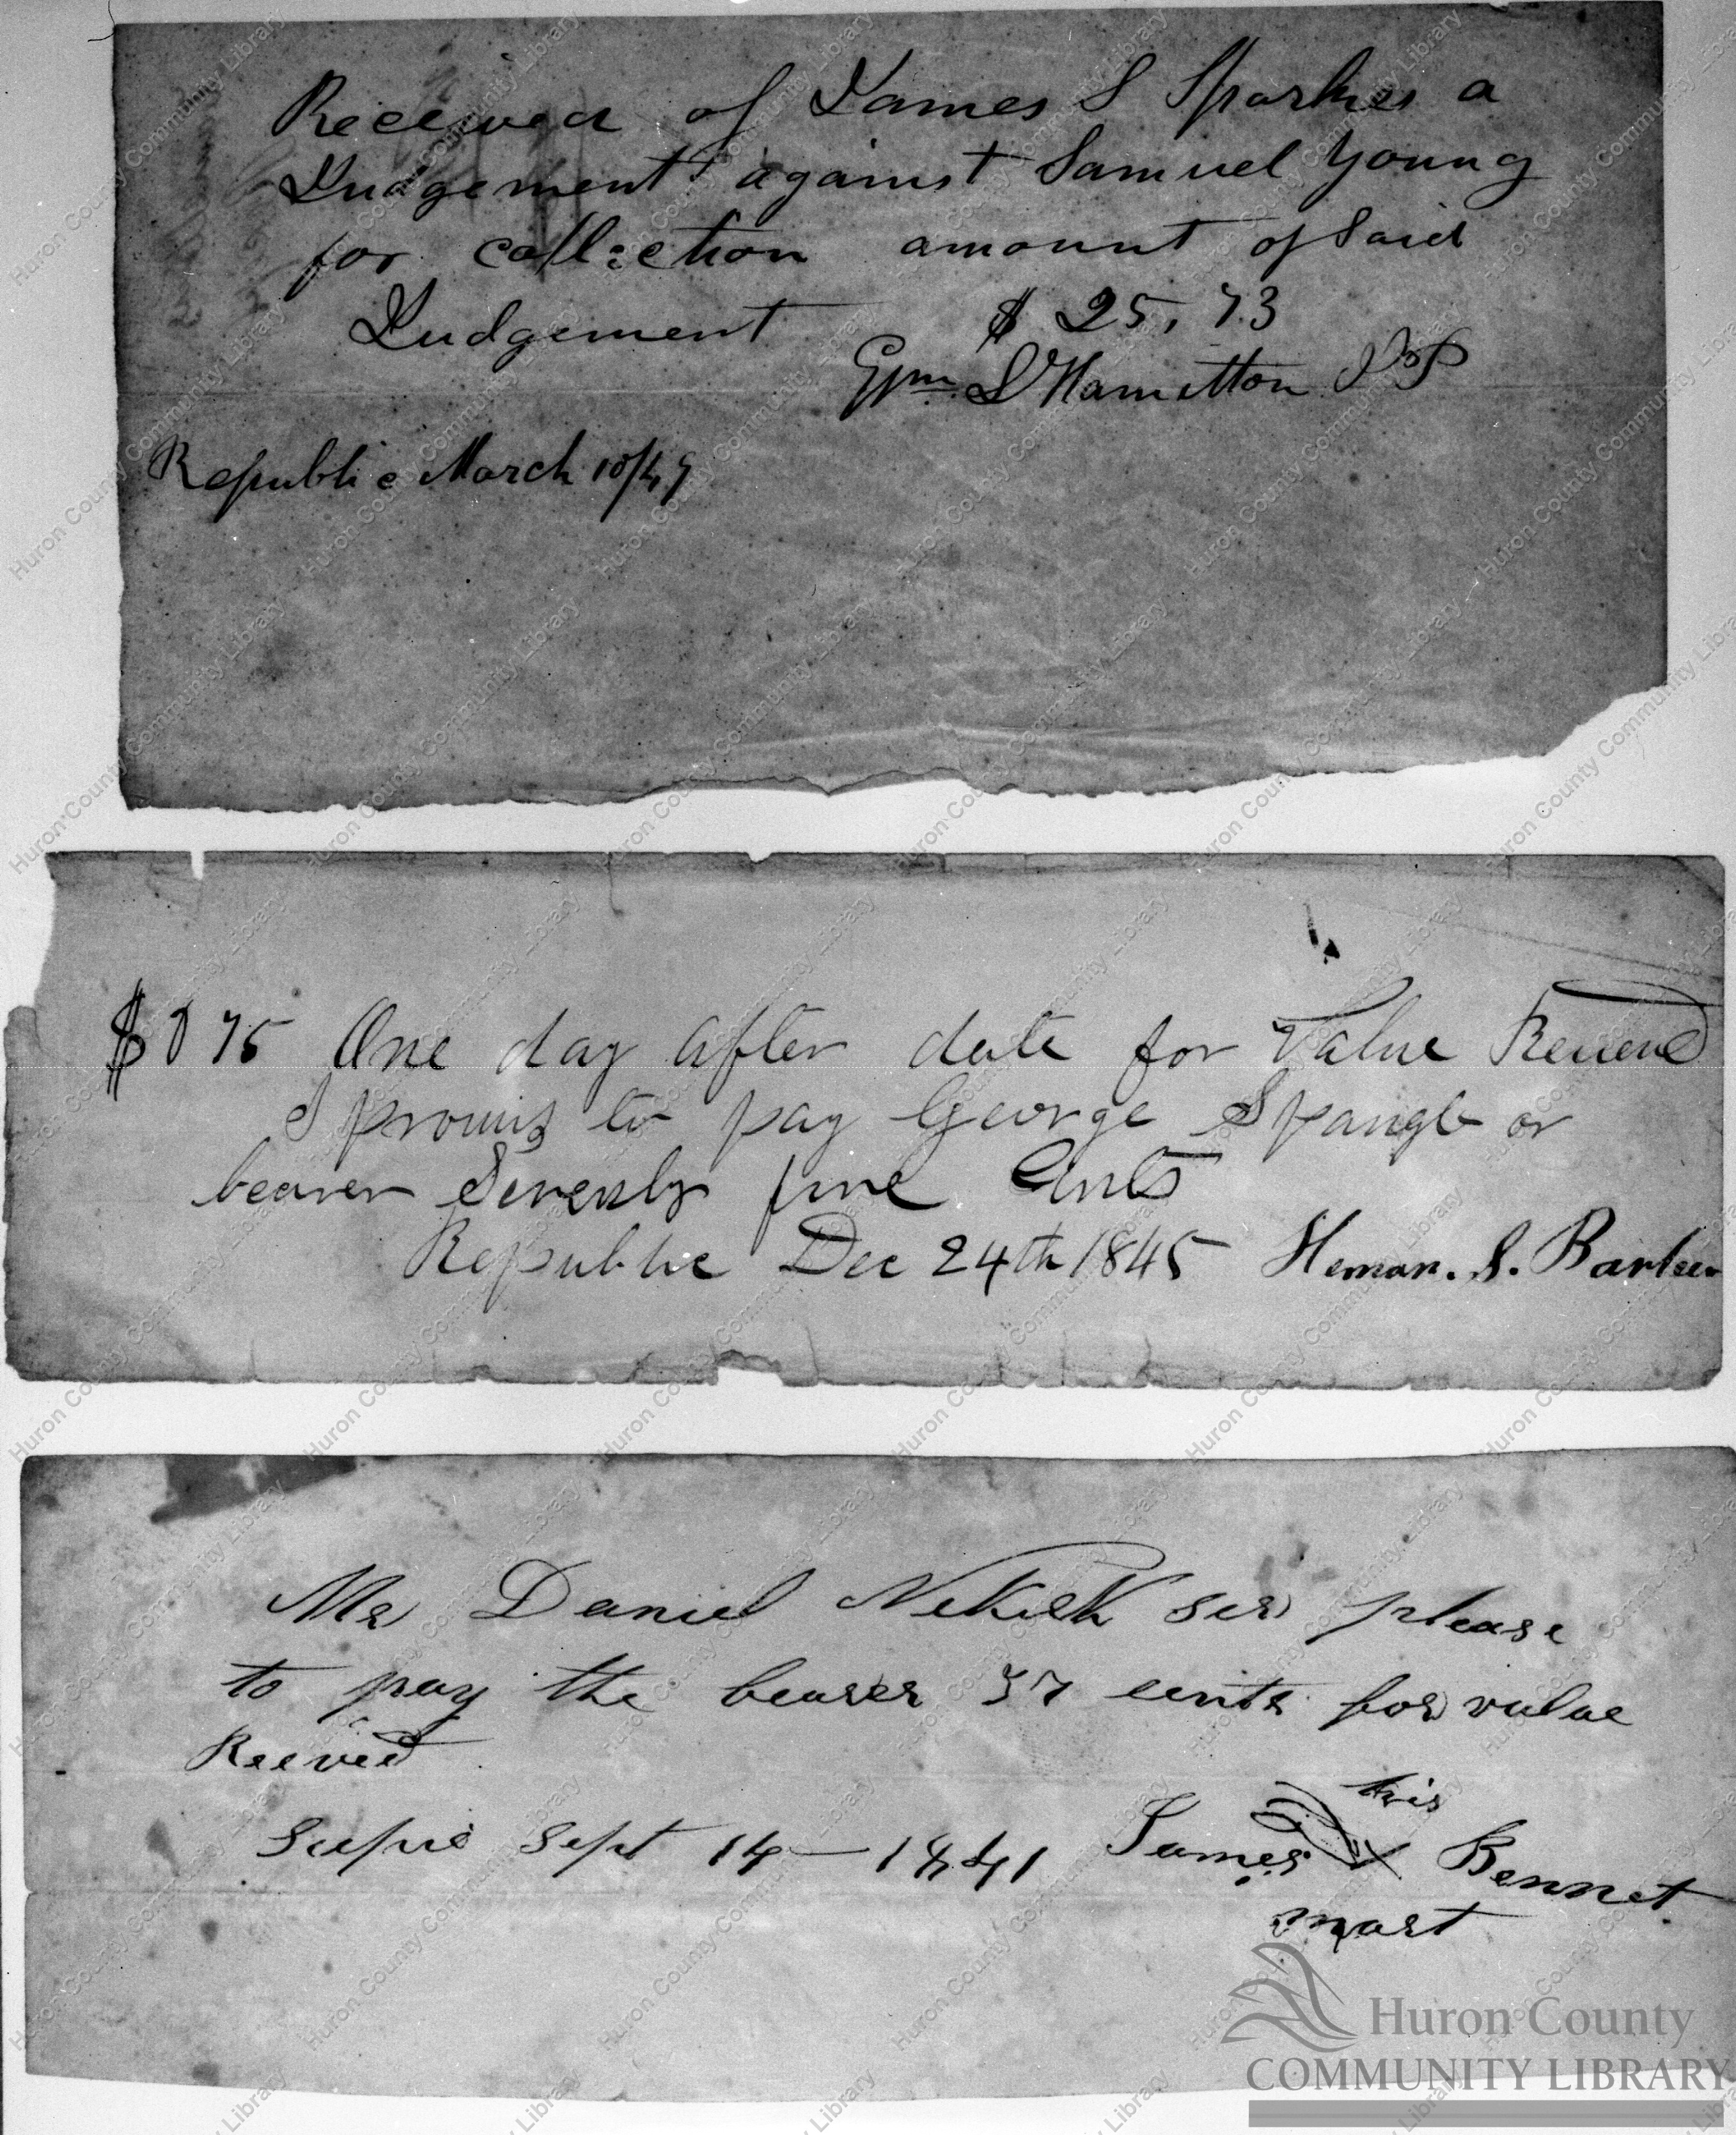 Received of James S Sparkes a
Judgement against Samuel Young
for collection amount of Said
Judgement $ 25,73
Wm S Hamilton
Republic March 10/49
$0 75 One day after date for Value Receved
I promis to pay George Spangle or
bearer Seventy five Cents
Republic Dec 24th 1845 Heman. S. Barker
Mr Daniel Nekirk ser please
to pay the bearer 37 cents for value
Reeved
Sept 14 - 1841 James X Bennet
his
mark
Huron County
COMMUNITY LIBRARY